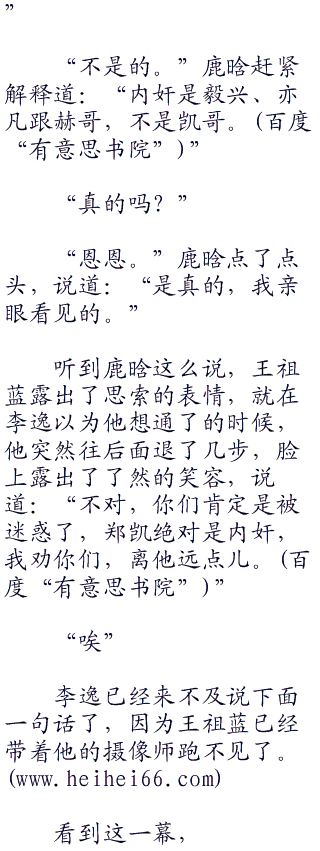 ”
“不是的。”鹿晗赶紧
解释道：“内奸是毅兴、亦
凡跟赫哥，不是凯哥。(百度
“有意思书院”)”
“真的吗？”
“恩恩。”鹿晗点了点
头，说道：“是真的，我亲
眼看见的。”
听到鹿晗这么说，王祖
蓝露出了思索的表情，就在
李逸以为他想通了的时候，
他突然往后面退了几步，脸
上露出了了然的笑容，说
道：“不对，你们肯定是被
迷惑了，郑凯绝对是内奸，
我劝你们，离他远点儿。(百
度“有意思书院”)”
“唉”
李逸已经来不及说下面
一句话了，因为王祖蓝已经
带着他的摄像师跑不见了。
(www.heihei66.com)
看到这一幕，